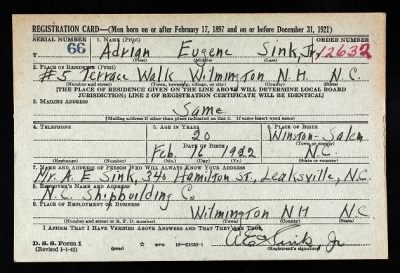 REGISTRATION CARD—(Men born on or after February 17, 1897 and on or before December 31, 1921)
SERIAL NUMBER 1. NAME (Print) ORDER NUMBER
66 Adrian Eugene Sink, Jr. 12632
(First) (Middle) (Last)
2. PLACE OF RESIDENCE (Print)
#5 Terrace Walk Wilmington N.H. N.C.
(Number and street) (Town, township, village, or city) (County) (State)
[THE PLACE OF RESIDENCE GIVEN ON THE LINE ABOVE WILL DETERMINE LOCAL BOARD
JURISDICTION; LINE 2 OF REGISTRATION CERTIFICATE WILL BE IDENTICAL]
3. MAILING ADDRESS
Same
[Mailing address if other than place indicated on line 2. If same insert word same]
4. TELEPHONE 5. AGE IN YEARS 6. PLACE OF BIRTH
20 Winston-Salem
DATE OF BIRTH (Town or county)
Feb. 1922 N.C.
(Exchange) (Number) (Mo.) (Day) (Yr.) (State or country)
7. NAME AND ADDRESS OF PERSON WHO WILL ALWAYS KNOW YOUR ADDRESS
Mr. A. E. Sink, 340 Hamilton St., Leaksville, N.C.
8. EMPLOYER'S NAME AND ADDRESS
N.C. Shipbuilding Co.
9. PLACE OF EMPLOYMENT OR BUSINESS
Wilmington N.H. N.C.
(Number and street or R. F. D. number) (Town) (County) (State)
I AFFIRM THAT I HAVE VERIFIED ABOVE ANSWERS AND THAT THEY ARE TRUE.
D. S. S. Form 1
(Revised 1-1-42) (over) GPO 16—21630-1 A E Sink Jr
(Registrant's signature)